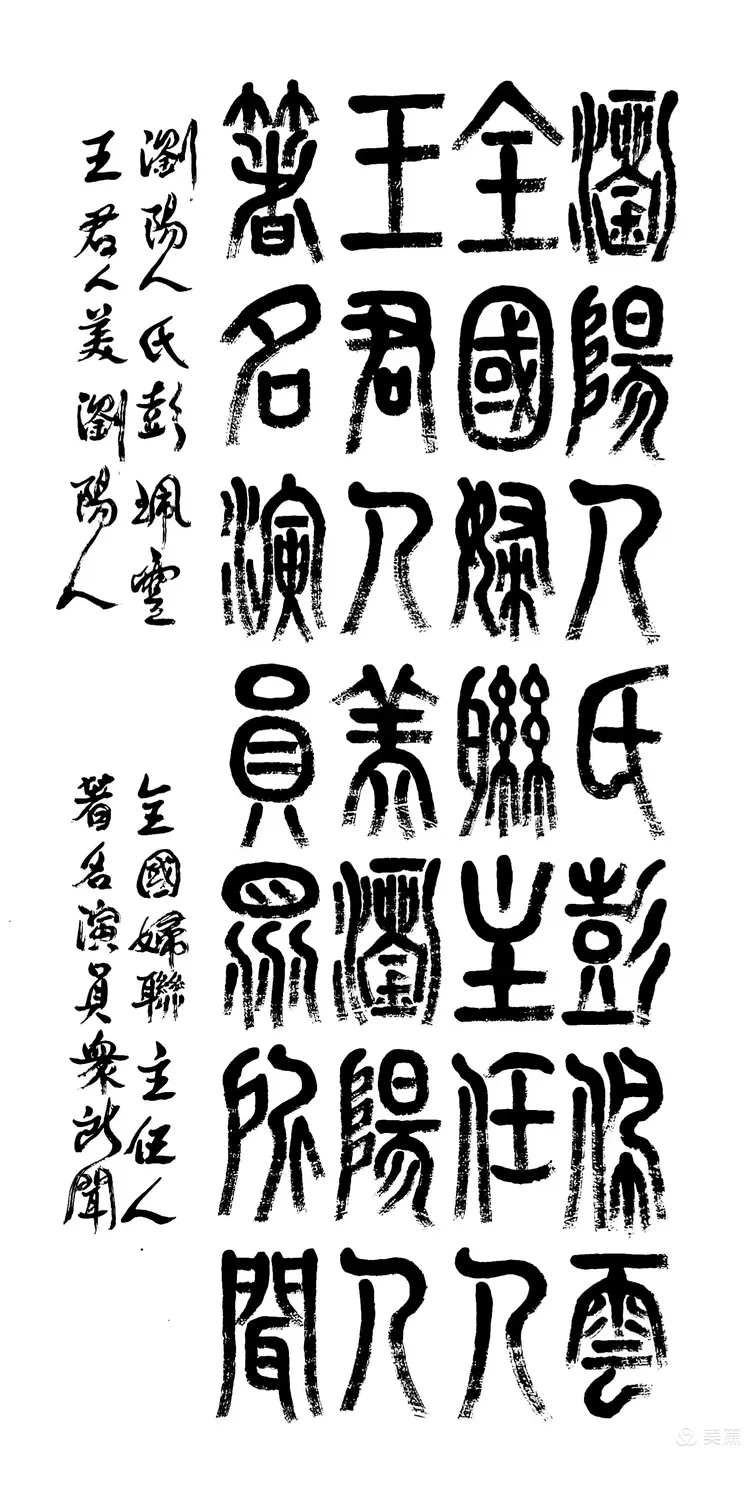 瀏陽人氏彭佩雲
全國婦聯主任人
王君人美瀏陽人
著名演員眾所聞
瀏陽人氏彭珮雲 全國婦聯主任人
王君人美瀏陽人 著名演員衆所聞
美篇